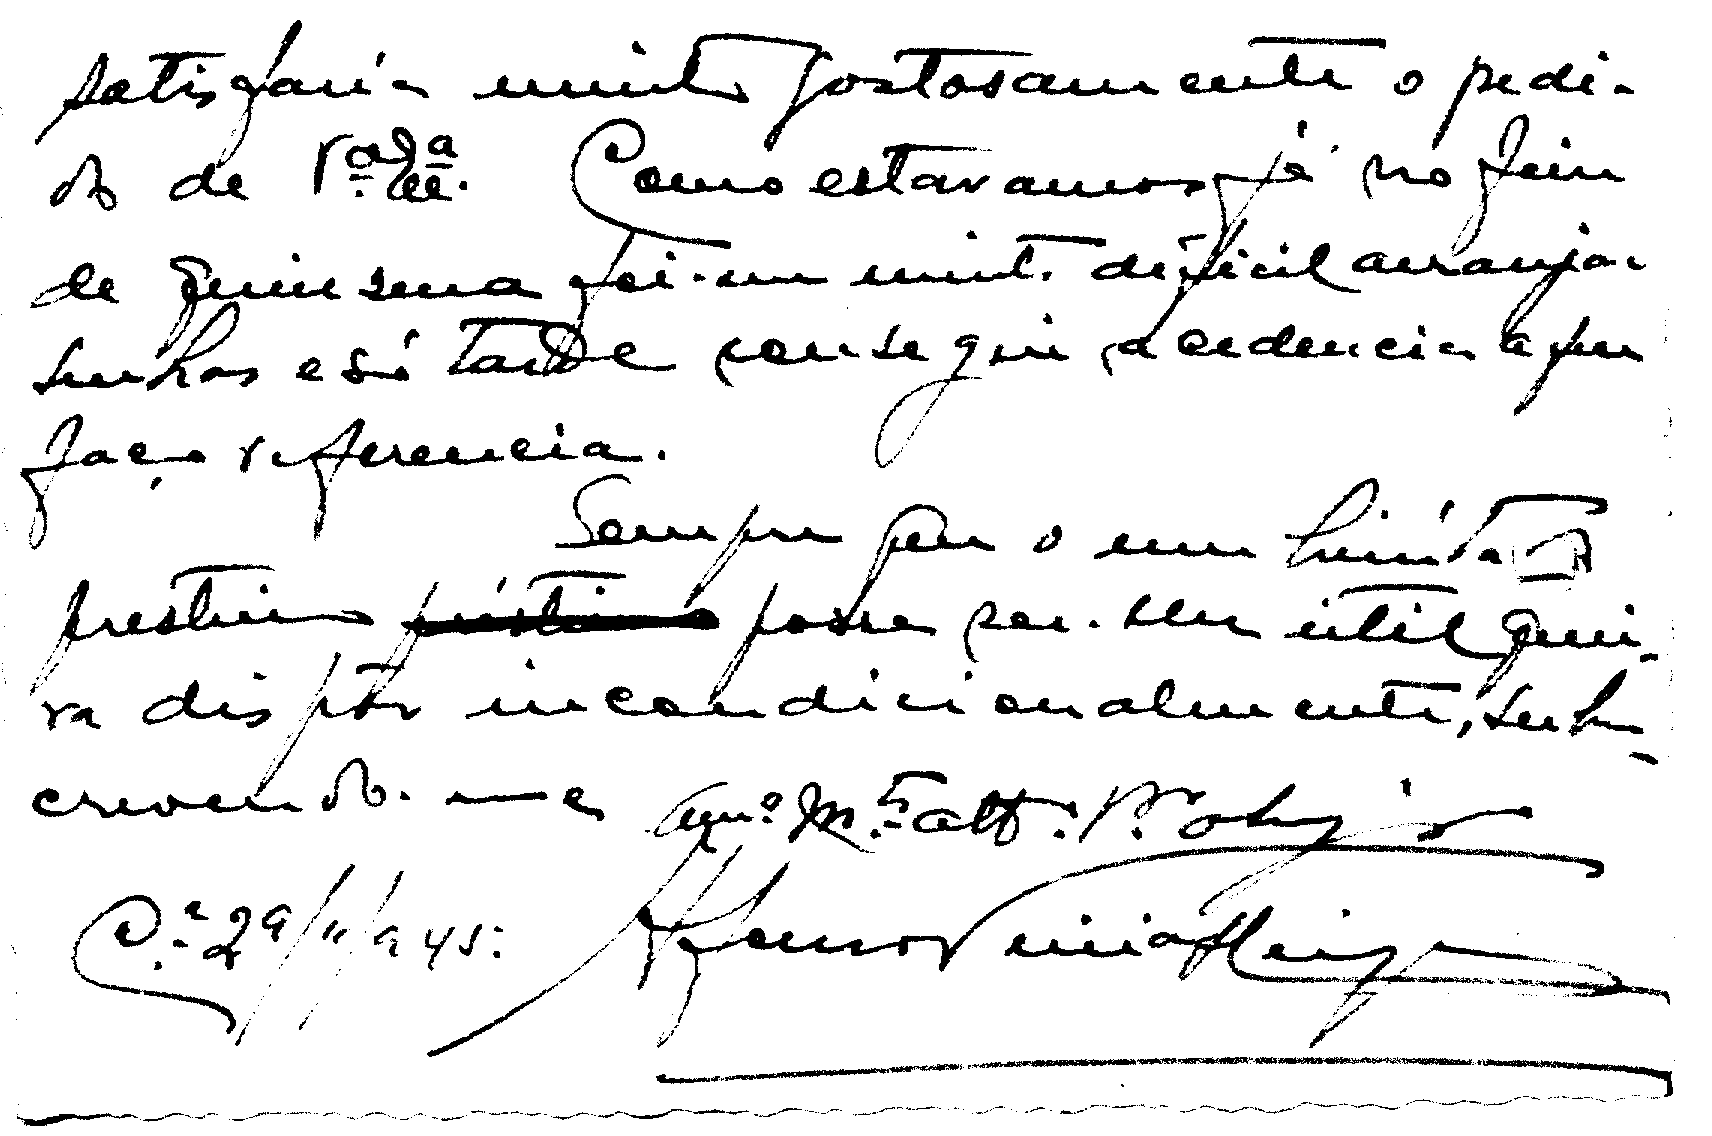 satisfaria muito gostosamente o pedi-
do de V. Como estavamos já no fim
de quinsena foi-me muito dificil arranjar
senhas e só tarde consegui a cedencia a que
faço referencia.
Sempre que o meu limitado
prestimo préstimo possa ser-lhe útil quei-
ra dispôr incondicionalmente, subs-
crevendo-me Am.º M.to att.º
C.ª 29/11/945.